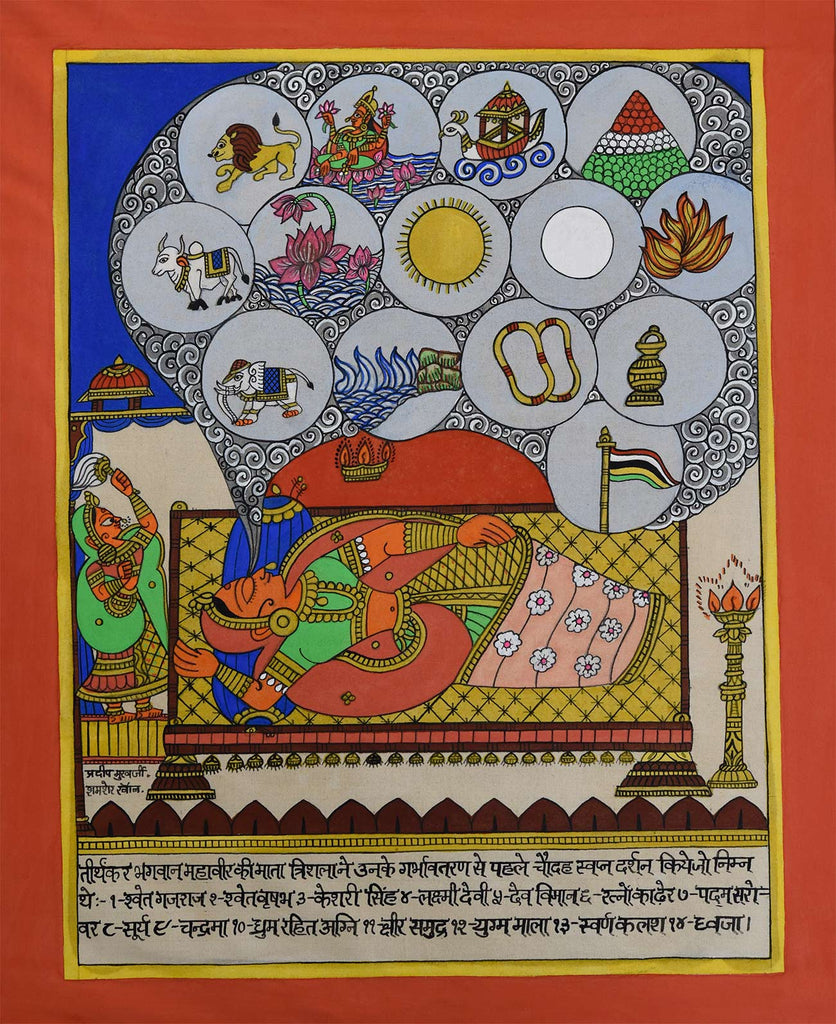 प्रदीप मुखर्जी.
शमशेर खान.
तीर्थंकर भगवान महावीर की माता त्रिशला ने उनके गर्भावतरण से पहले चौदह स्वप्न दर्शन कियेजो निम्न
थे:- १-श्वेत गजराज २-श्वेत वृषभ ३-केशरी सिंह ४-लक्ष्मी देवी ५-देव विमान ६-रत्नों का ढेर ७-पद्म सरो-
वर ८-सूर्य ९-चन्द्रमा १०-धुम्र रहित अग्नि ११-क्षीर समुद्र १२-युग्म माला १३-स्वर्ण कलश १४-ध्वजा।